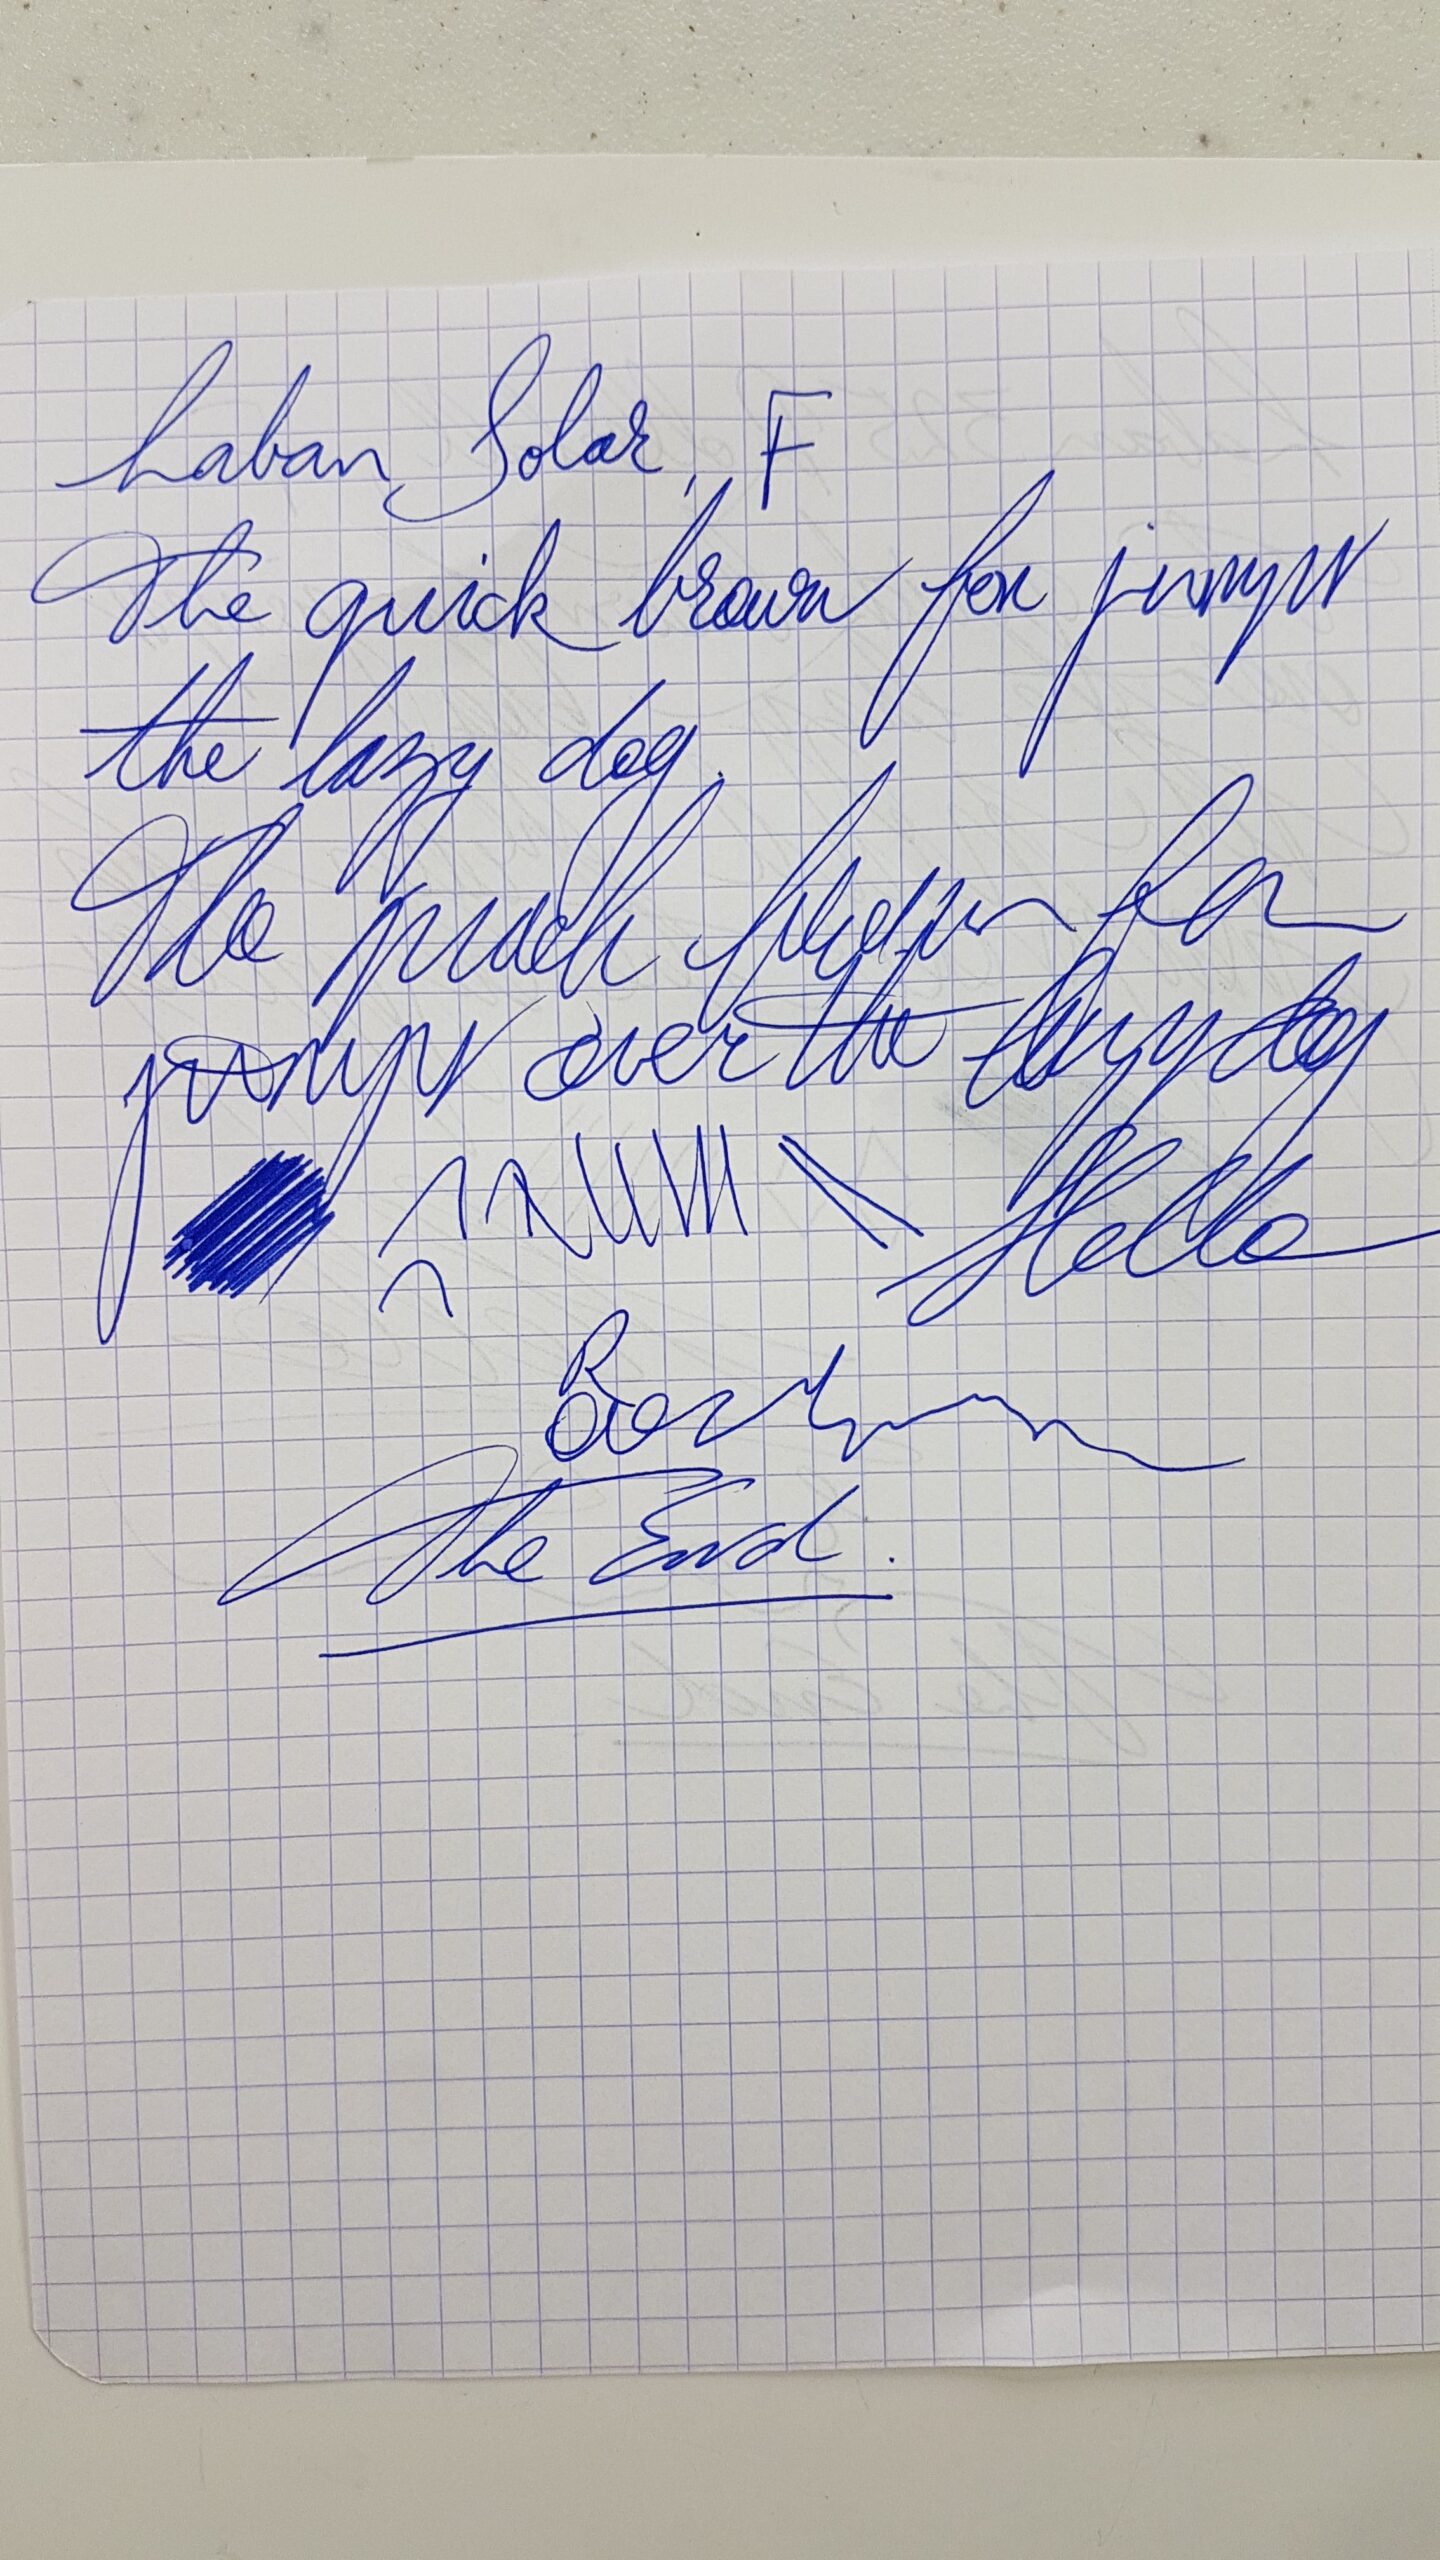 Laban Solar, F
The quick brown fox jumps
the lazy dog.
The quick brown fox
jumps over the lazy dog
Hello
The End.